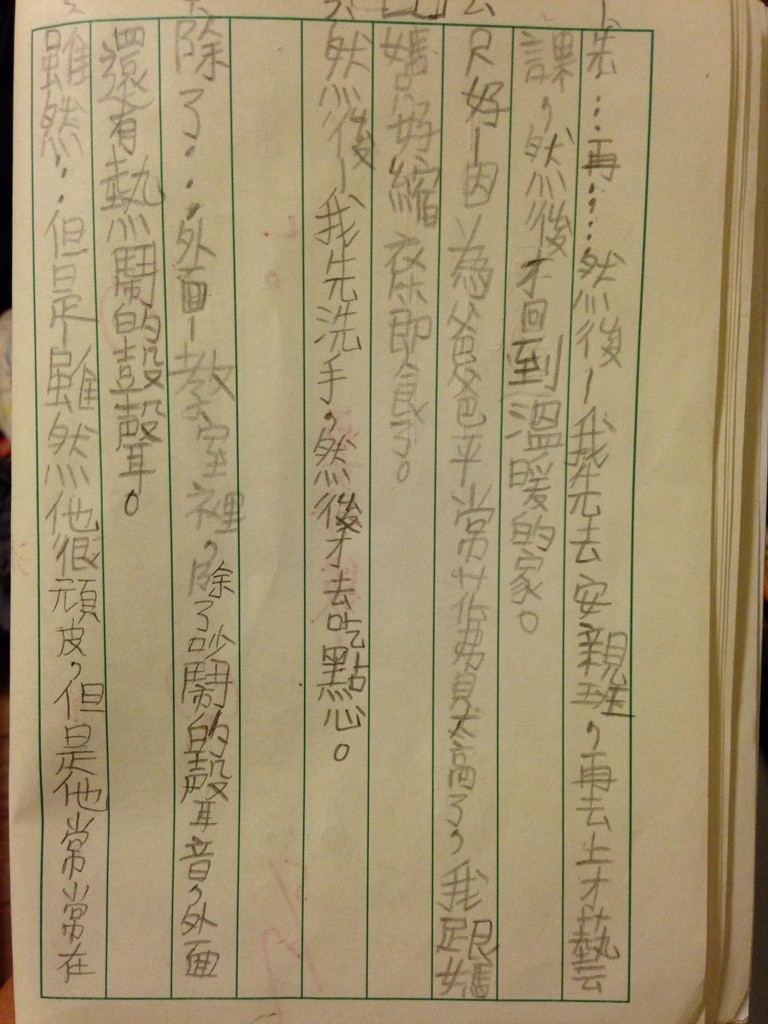 先…再…然後—我先去安親班，再去上才藝
課，然後才回到溫暖的家。
只好—因為爸爸平常花費太高了，我跟媽
媽只好縮衣節食了。
然後—我先洗手，然後才去吃點心。
除了…外面—教室裡，除了吵鬧的聲音，外面
還有熱鬧的鼓聲。
雖然…但是—雖然他很頑皮，但是他常常在